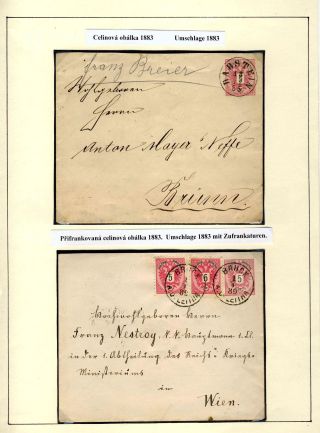 Celinová obálka 1883 Umschlage 1883
franz Breier
HABSTEIN
Wohlgeboren
Herrn
Anton Mayer's Neffe
Brünn
Přifrankovaná celinová obálka 1883. Umschlage 1883 mit Zufrankaturen.
5 6 5
Hochwohlgeboren Herrn
Franz Nestroy, K. K. Hauptmann i. d.
in der 1. Abtheilung des Reichs-Kriegs-
Ministeriums
in
Wien.